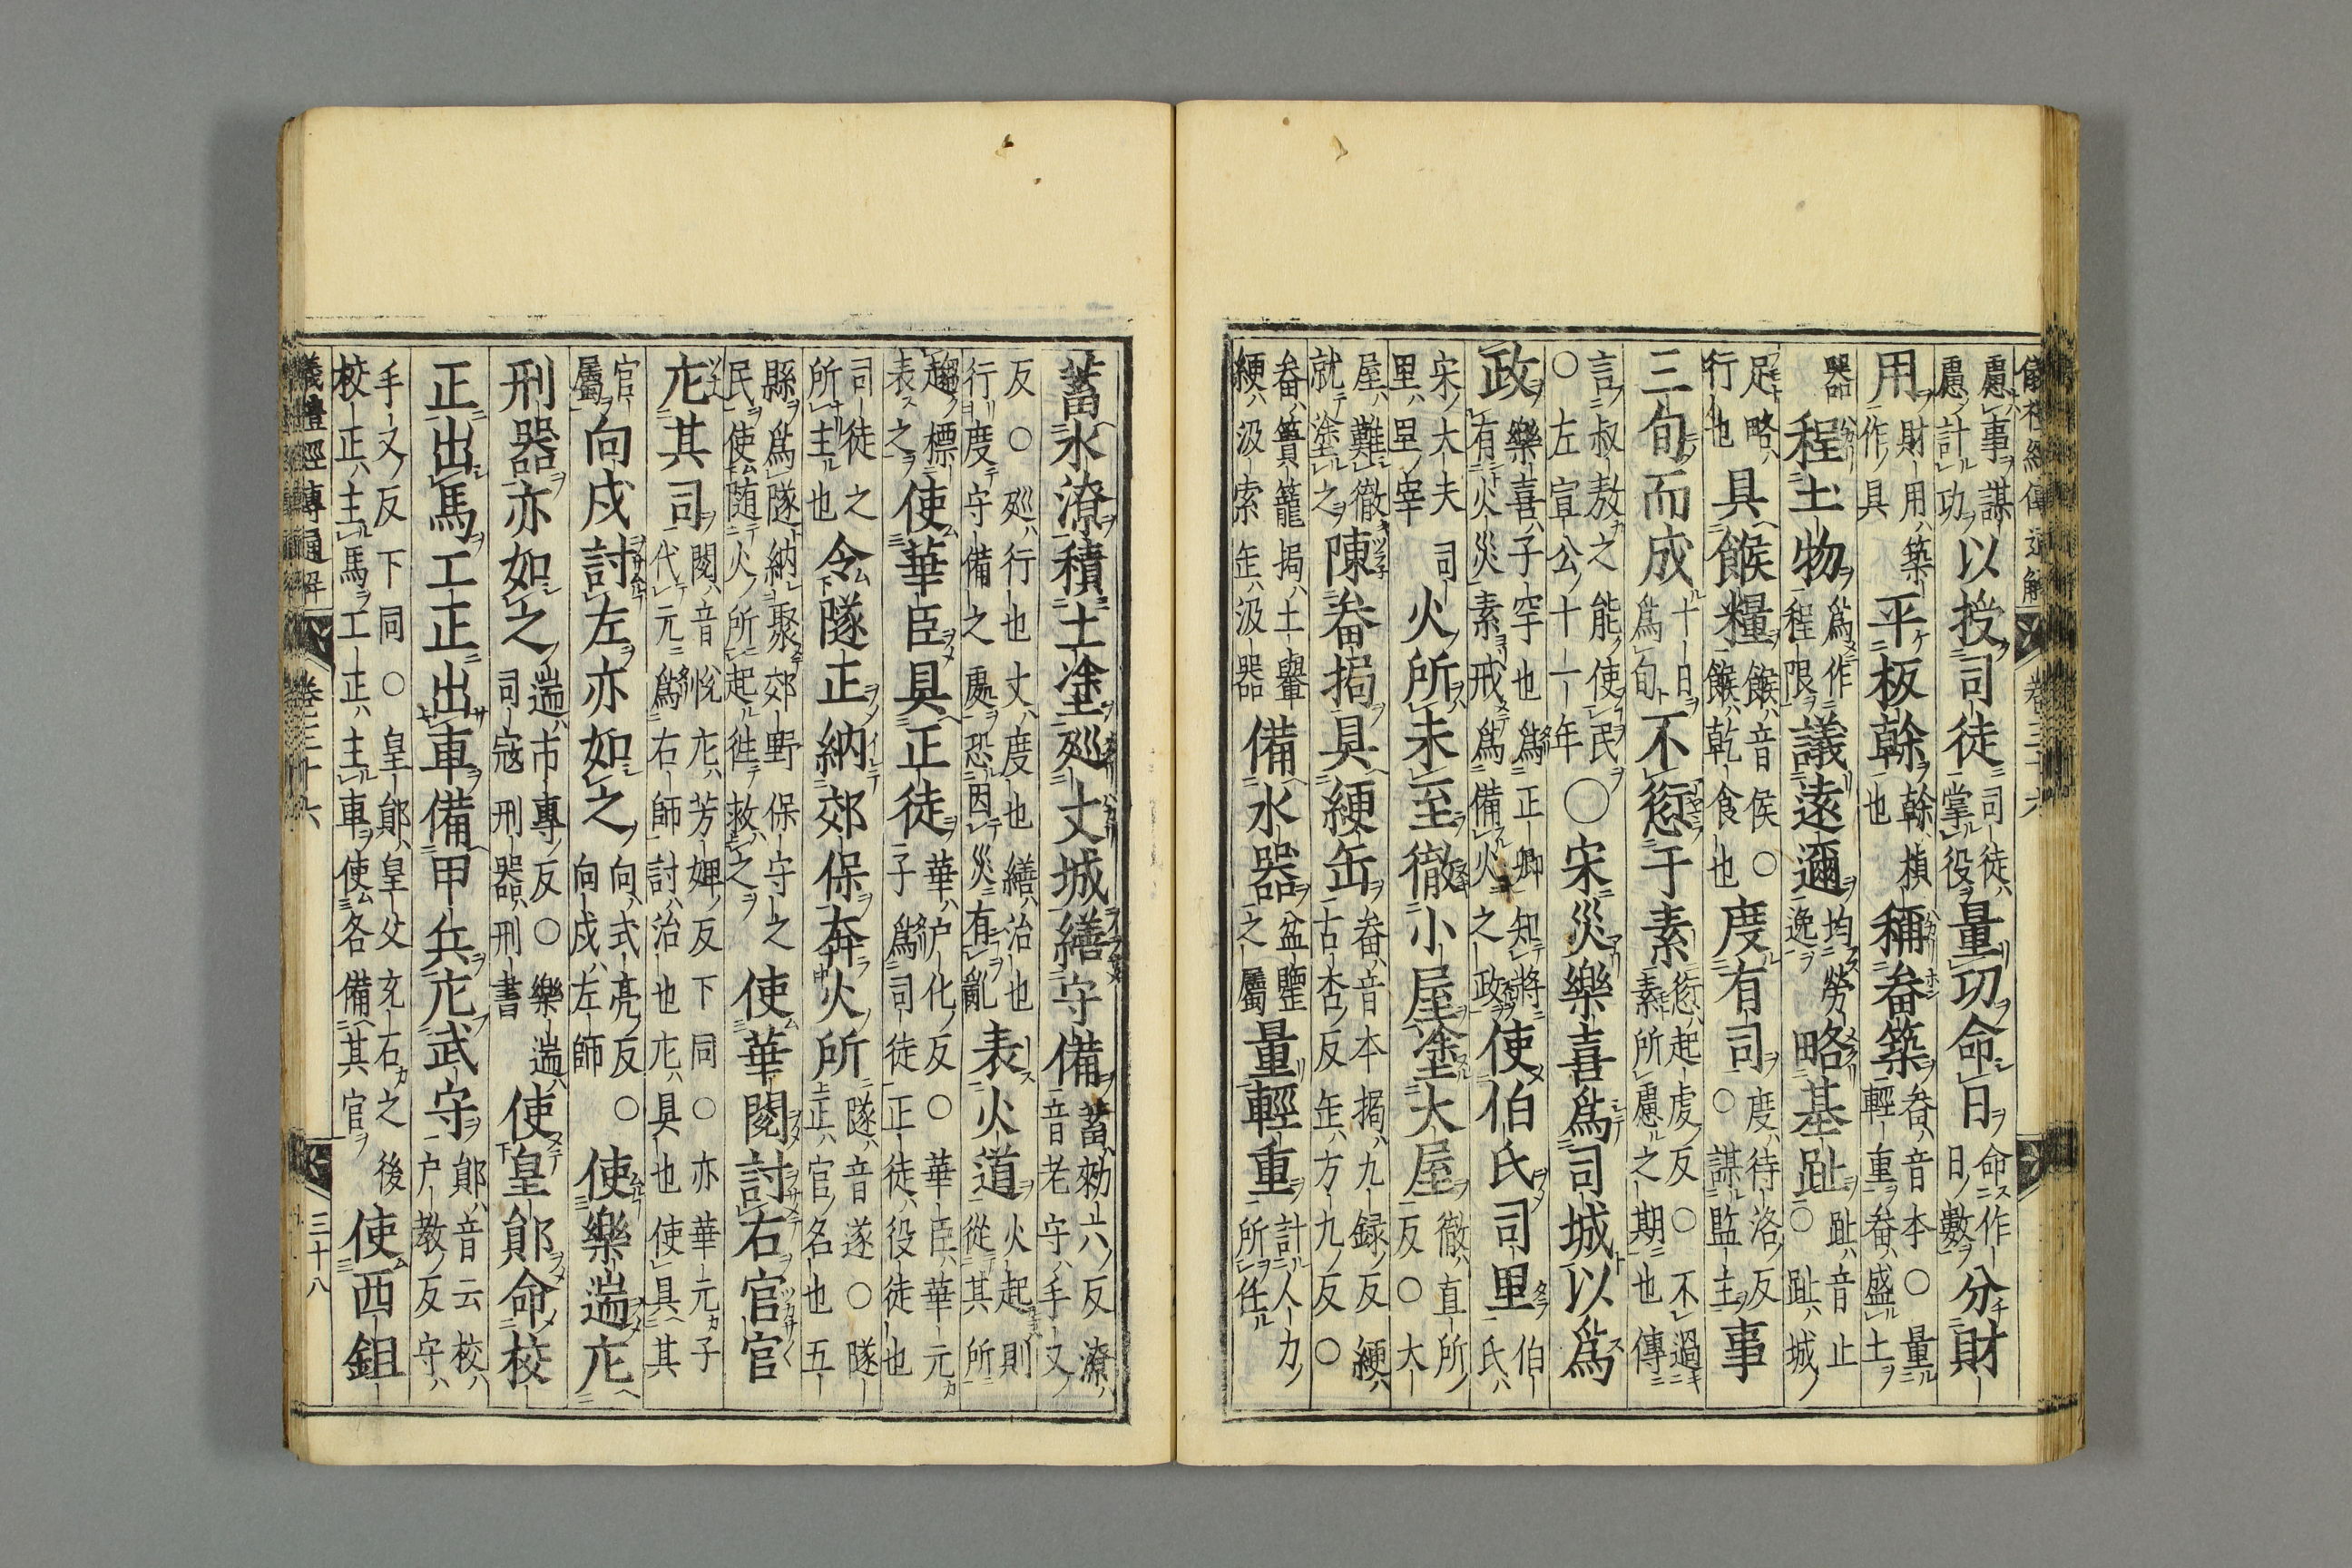 儀禮經傳通解 卷三十六
慮事謀慮計功以授司徒司徒掌役量功命日命作日數分財
用財用築作具平板榦榦楨也稱畚築畚音本○量輕重畚盛土
器程土物爲作程限議遠邇均勞逸略基趾趾音止○趾城
足略行也具餱糧餱音侯○餱乾食也度有司度待洛反○謀監主事
三旬而成十日爲旬不愆于素愆起虔反○不過素所慮之期也傳
言叔敖之能使民○左宣公十一年○宋災樂喜爲司城以爲
政樂喜子罕也爲正卿知將有火災素戒爲備火之政使伯氏司里伯氏
宋大夫里里宰司火所未至徹小屋塗大屋徹直所反○大
屋難徹就塗之陳畚挶具綆缶畚音本挶九録反綆古杏反缶方九反○
畚簣籠挶土轝綆汲索缶汲器備水器盆鑒之屬量輕重計人力所任
蓄水潦積土塗巡丈城繕守備蓄勑六反潦音老守手又
反○巡行也丈度也繕治也行度守備之處恐因災有亂表火道火起則從其所
趨標表之使華臣具正徒華户化反○華臣華元子爲司徒正徒役徒也
司徒之所主也令隧正納郊保奔火所隧音遂○隧正官名也五
縣爲隧納聚郊野保守之民使随火所起徃救之使華閱討右官官
庀其司閱音悅庀芳婢反下同○亦華元子代元爲右師討治也庀具也使具其
官屬向戌討左亦如之向式亮反○向戌左師使樂遄庀
刑器亦如之遄市專反○樂遄司寇刑器刑書使皇鄖命校
正出馬工正出車備甲兵庀武守鄖音云校户教反守
手又反下同○皇鄖皇父充石之後校正主馬工正主車使各備其官使西鉏
儀禮經傳通解 卷三十六 三十八